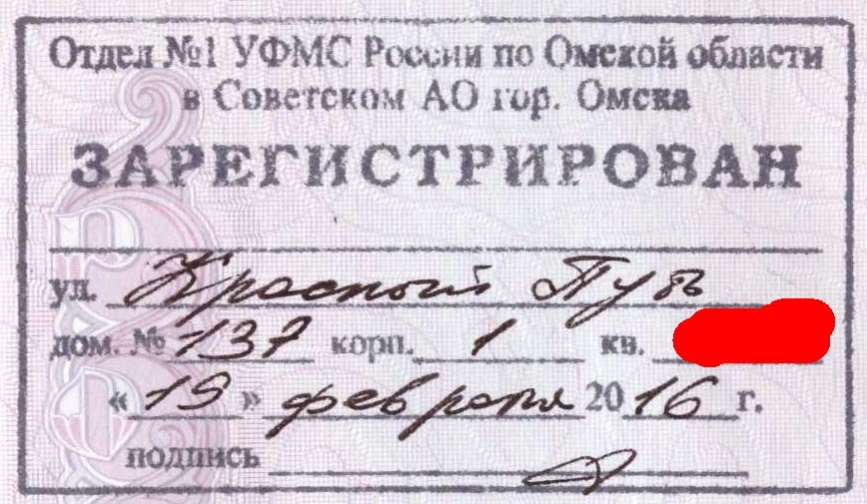 Отдел №1 УФМС России по Омской области
в Советском АО гор. Омска
ЗАРЕГИСТРИРОВАН
ул. Красный Путь
дом. № 137 корп. 1 кв.
«19» февраля 2016 г.
подпись